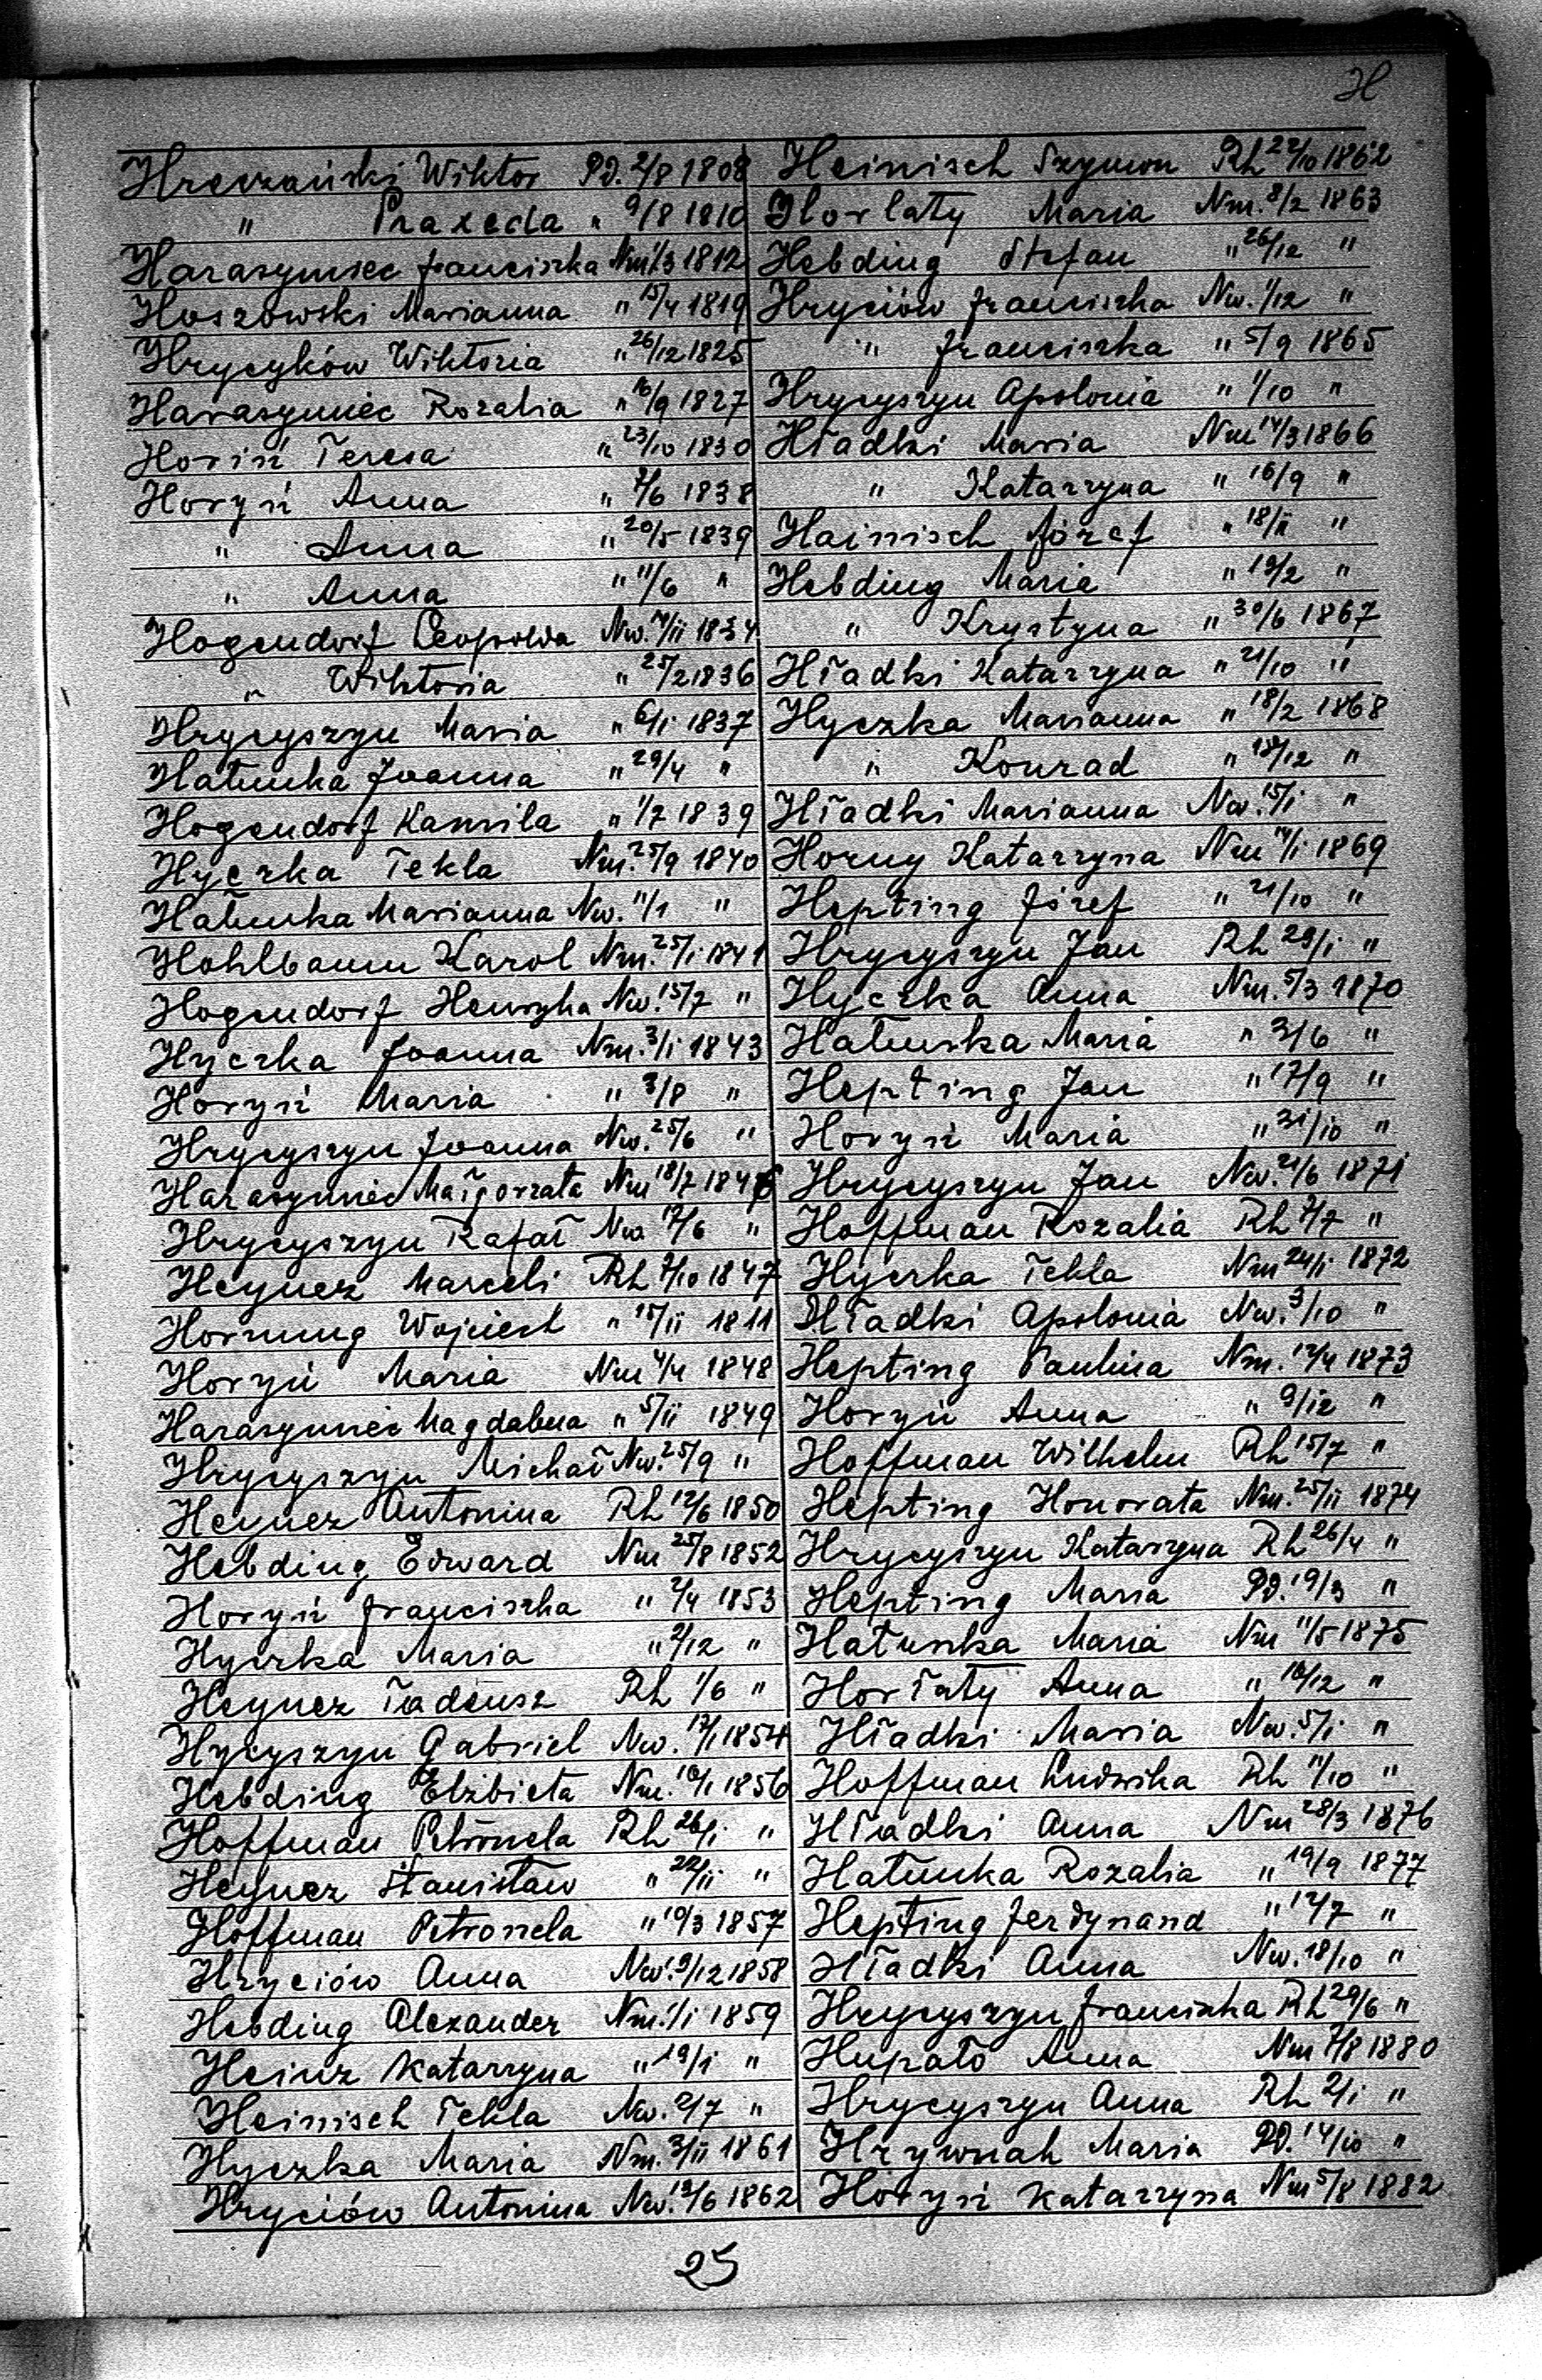 H
Hrevzański Wiktor Pd. 2/8 1808
" Praxeda " 9/8 1810
Harasymiec Franciszka Nm 1/3 1812
Hoszowski Marianna " 15/4 1819
Hrycyków Wiktoria " 26/12 1825
Harasymiec Rozalia " 16/9 1827
Horiń Teresa " 23/10 1830
Horyń Anna " 7/6 1838
" Anna " 20/5 1839
" Anna " 11/6 "
Hogendorf Leopolda Nw. 14/11 1834
" Wiktoria " 25/2 1836
Hrycyszyn Maria " 6/1 1837
Hałunka Joanna " 29/4 "
Hogendorf Kamila " 1/7 1839
Hyczka Tekla Nm. 25/9 1840
Hałunka Marianna Nw. 11/1 "
Hohlbaum Karol Nm. 25/1 1841
Hogendorf Henryka Nw. 15/7 "
Hyczka Joanna Nm. 3/1 1843
Horyń Maria " 3/8 "
Hrycyszyn Joanna Nw. 25/6 "
Harasymiec Małgorzata Nm 18/7 1846
Hrycyszyn Rafał Nw. 17/6 "
Heyncz Marceli Rh 7/10 1847
Hornung Wojciech " 15/11 1811
Horyń Maria Nm 4/4 1848
Harasymiec Magdalena " 5/11 1849
Hrycyszyn Michał Nw. 25/9 "
Heyncz Antonina Rh 12/6 1850
Hebding Edward Nm 25/8 1852
Horyń Franciszka " 2/4 1853
Hyczka Maria " 2/12 "
Heyncz Tadeusz Rh 1/6 "
Hycyszyn Gabriel Nw. 17/1 1854
Hebding Elżbieta Nm. 10/1 1856
Hoffman Petronela Rh 26/1 "
Heyncz Stanisław " 22/11 "
Hoffman Petronela " 10/3 1857
Hryciów Anna Nw. 9/12 1858
Hebding Alexander Nm. 1/1 1859
Heinz Katarzyna " 19/1 "
Heinisch Tekla Nw. 2/7 "
Hyczka Maria Nm. 3/11 1861
Hryciów Antonina Nw. 12/6 1862
Heinisch Szymon Rh 22/10 1862
Horlaty Maria Nm. 8/2 1863
Hebding Stefan " 26/12 "
Hryciów Franciszka Nw. 1/12 "
" Franciszka " 5/9 1865
Hrycyszyn Apolonia " 1/10 "
Hładki Maria Nm 14/3 1866
" Katarzyna " 16/9 "
Hainisch Józef " 18/11 "
Hebding Maria " 19/2 "
" Krystyna " 30/6 1867
Hładki Katarzyna " 21/10 "
Hyczka Marianna " 18/2 1868
" Konrad " 15/12 "
Hładki Marianna Nw. 15/1 "
Horny Katarzyna Nm 14/1 1869
Hepting Józef " 21/10 "
Hrycyszyn Jan Rh 29/1 "
Hyczka Anna Nm. 5/3 1870
Hałunka Maria " 3/6 "
Hepting Jan " 17/9 "
Horyń Maria " 31/10 "
Hrycyszyn Jan Nw. 21/6 1871
Hoffman Rozalia Rh 7/7 "
Hyczka Tekla Nm 24/1 1872
Hładki Apolonia Nw. 3/10 "
Hepting Paulina Nm. 12/4 1873
Horyń Anna " 9/12 "
Hoffman Wilhelm Rh 15/7 "
Hepting Honorata Nm. 25/11 1874
Hrycyszyn Katarzyna Rh 26/4 "
Hepting Maria Pd. 19/3 "
Hatunka Maria Nm 11/5 1875
Horłaty Anna " 10/12 "
Hładki Maria Nw. 5/1 "
Hoffman Ludwika Rh 11/10 "
Hładki Anna Nm 28/3 1876
Hatunka Rozalia " 19/9 1877
Hepting Ferdynand " 12/7 "
Hładki Anna Nw. 18/10 "
Hrycyszyn Franciszka Rh 29/6 "
Hupało Anna Nm 7/8 1880
Hrycyszyn Anna Rh 2/1 "
Hrywnak Maria Pd. 14/10 "
Horyń Katarzyna Nm 5/8 1882
25